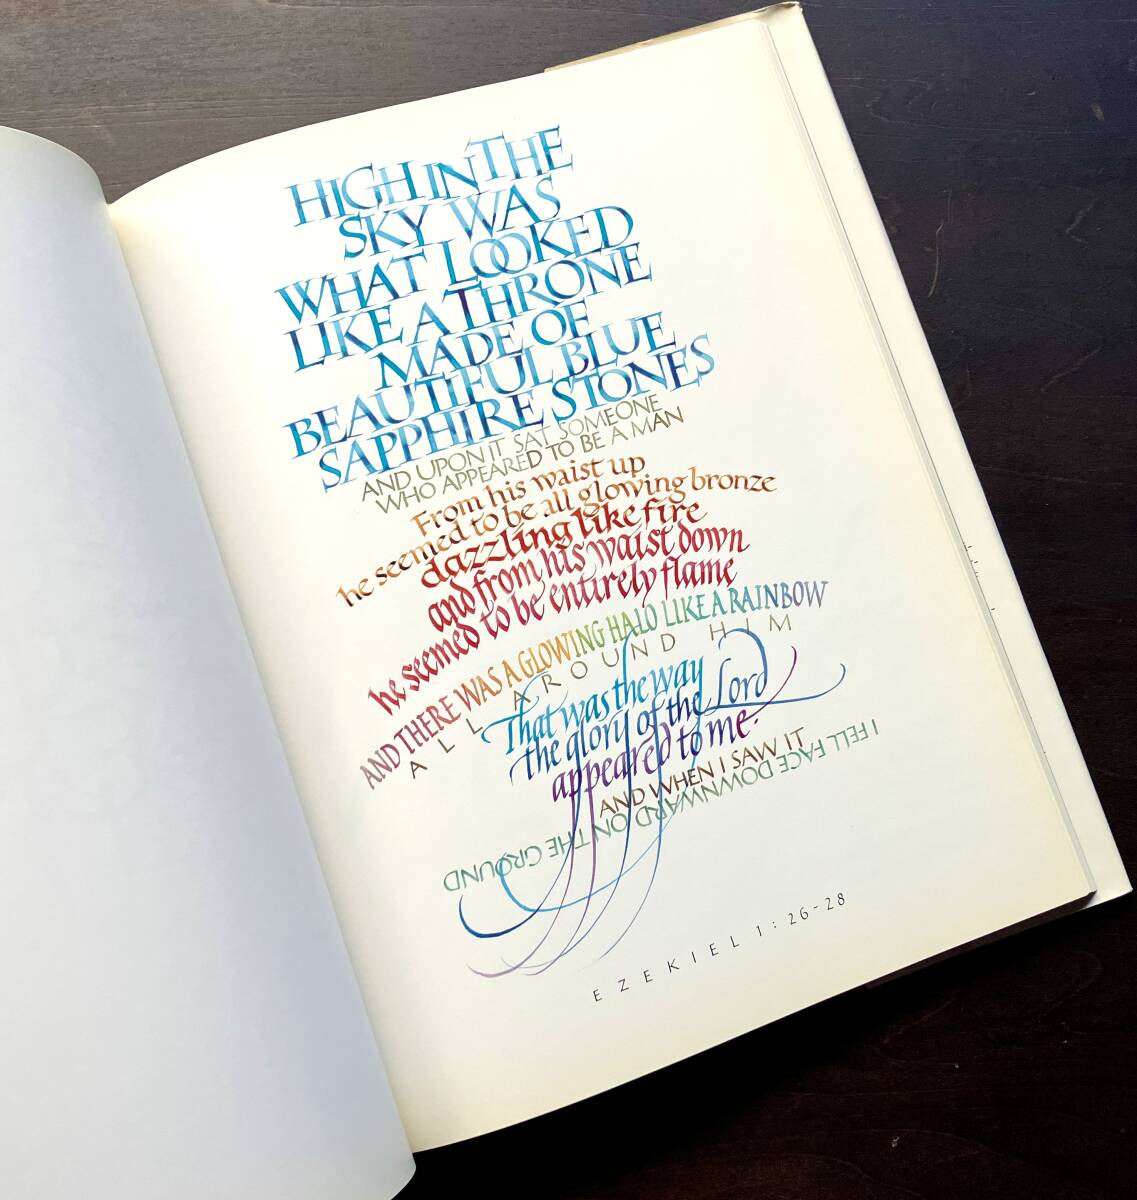 HIGH IN THE
SKY WAS
WHAT LOOKED
LIKE A THRONE
MADE OF
BEAUTIFUL BLUE
SAPPHIRE STONES
AND UPON IT SAT SOMEONE
WHO APPEARED TO BE A MAN
From his waist up
he seemed to be all glowing bronze
dazzling like fire
and from his waist down
he seemed to be entirely flame
AND THERE WAS A GLOWING HALO LIKE A RAINBOW
ALL AROUND HIM
That was the way
the glory of the Lord
appeared to me.
AND WHEN I SAW IT
I FELL FACE DOWNWARD ON THE GROUND
EZEKIEL 1:26-28